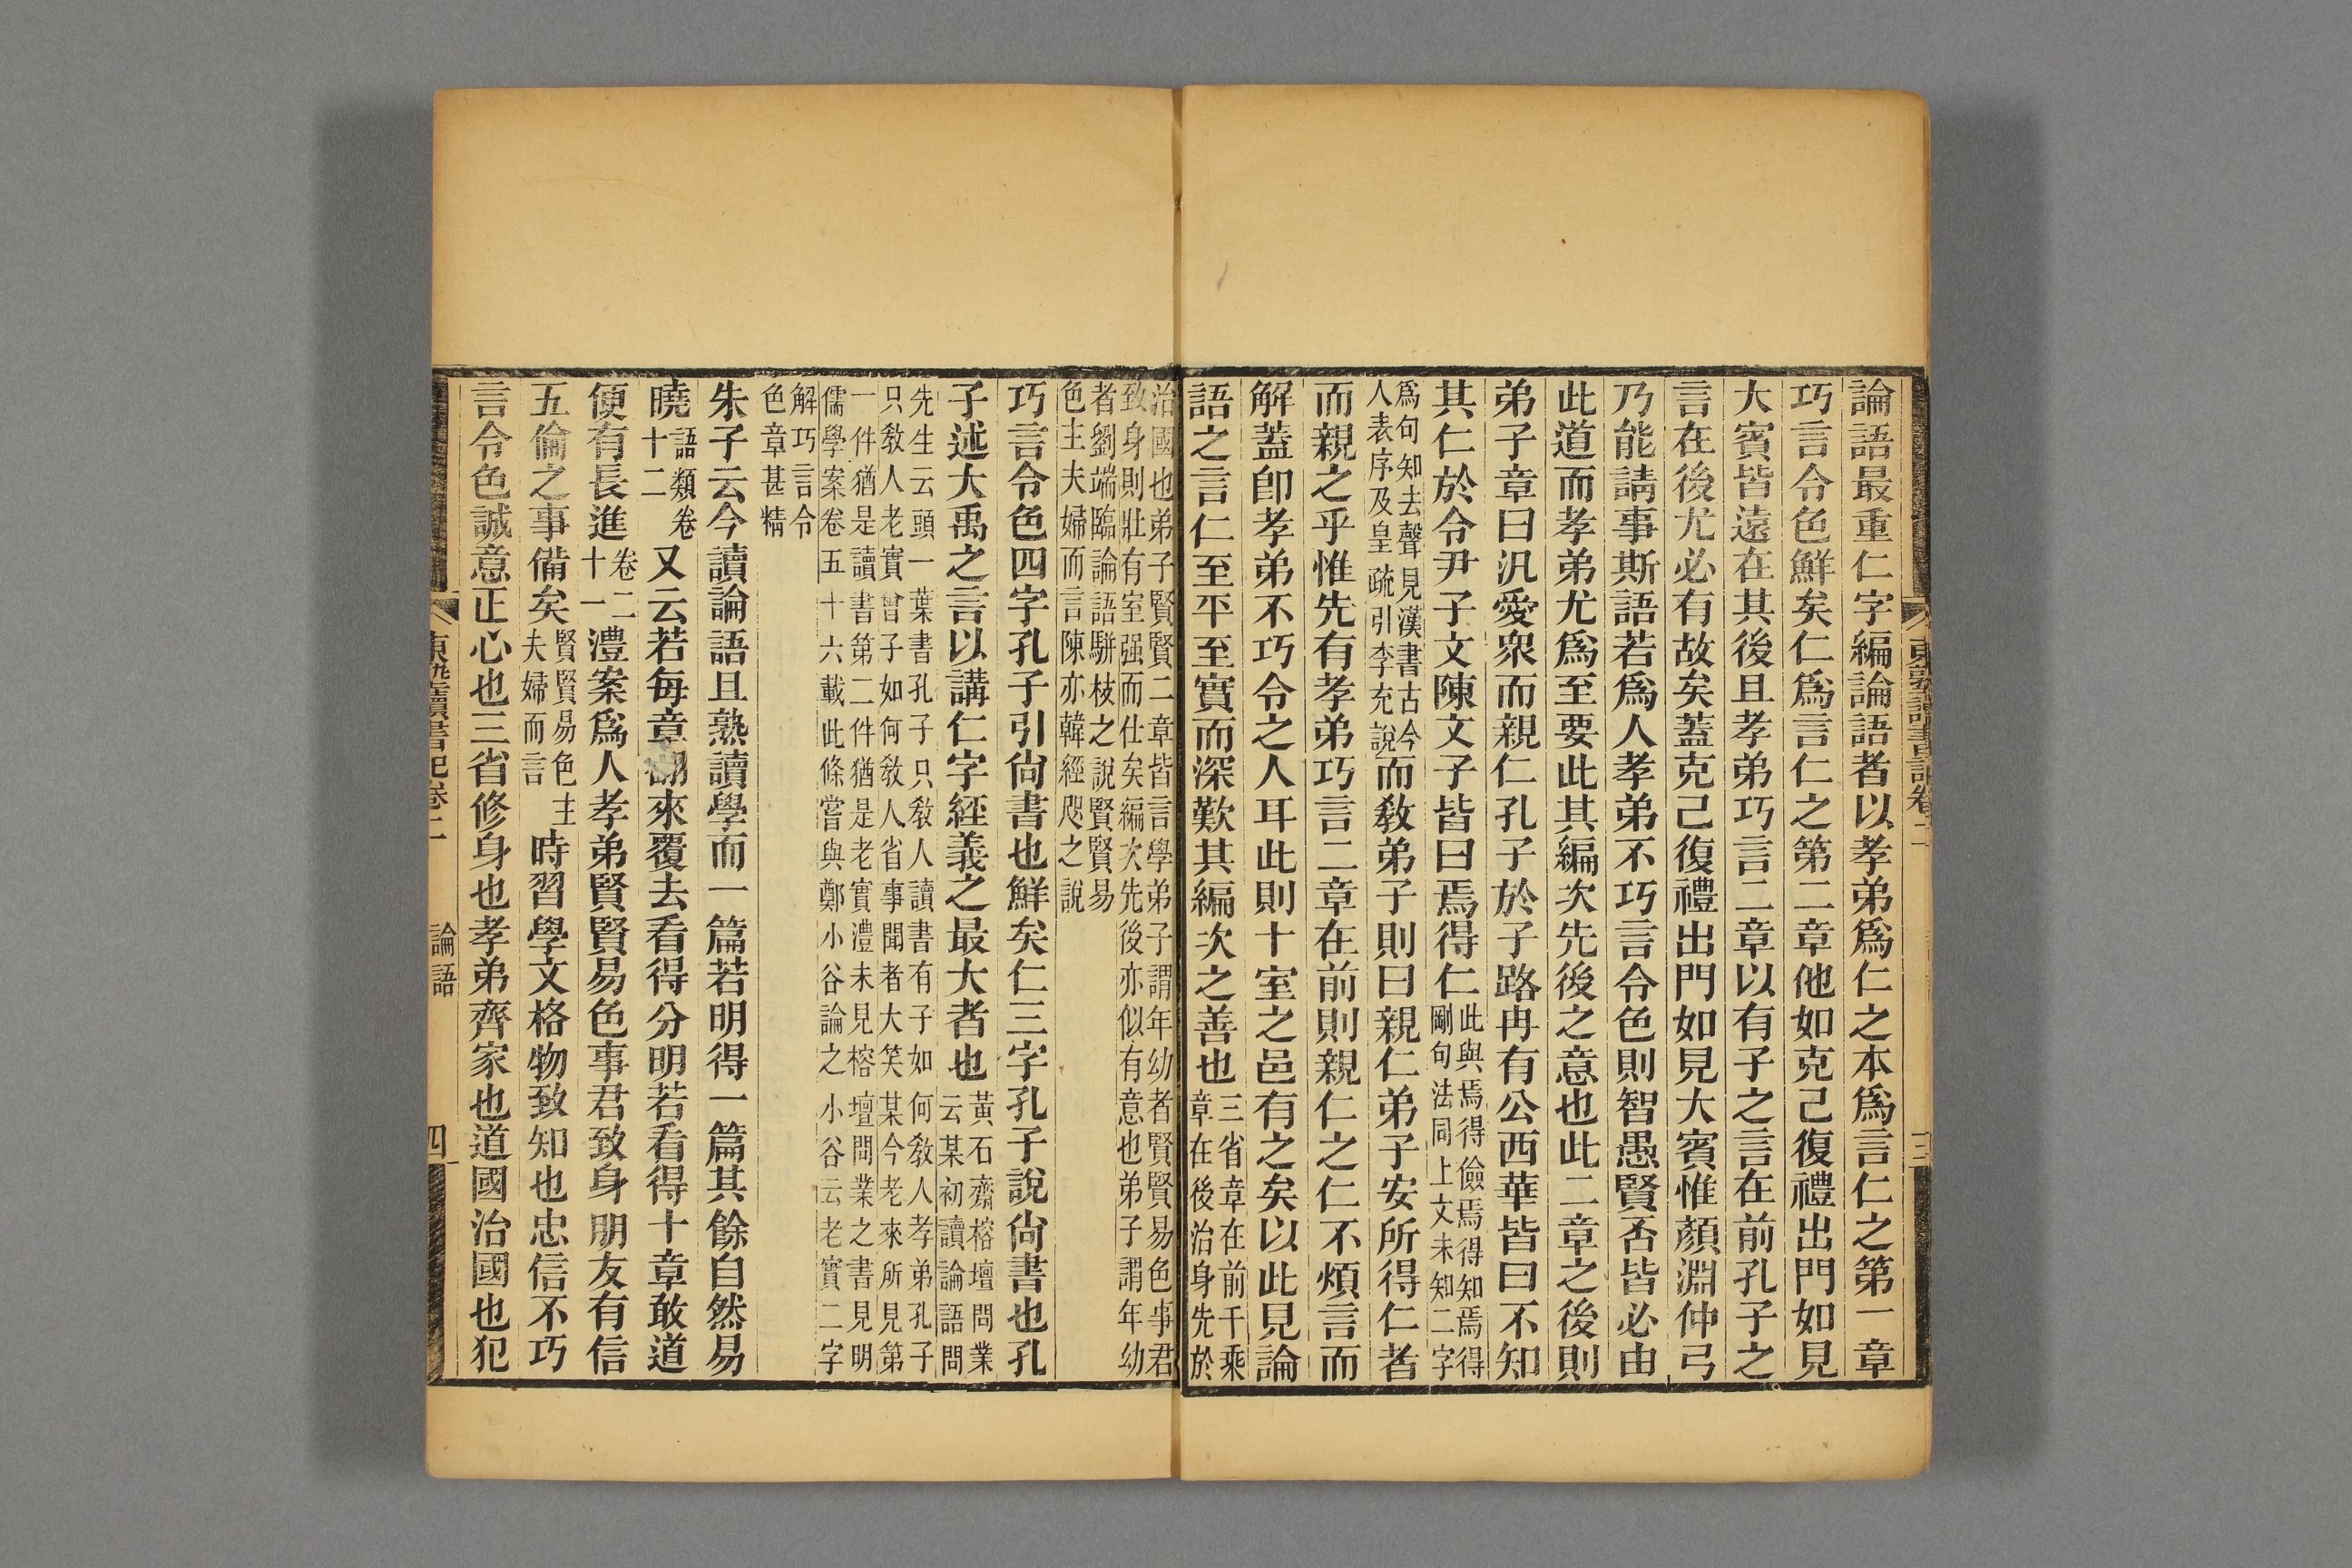 論語最重仁字編論語者以孝弟爲仁之本爲言仁之第一章
巧言令色鮮矣仁爲言仁之第二章他如克己復禮出門如見
大賓皆遠在其後且孝弟巧言二章以有子之言在前孔子之
言在後尤必有故矣蓋克己復禮出門如見大賓惟顏淵仲弓
乃能請事斯語若爲人孝弟不巧言令色則智愚賢否皆必由
此道而孝弟尤爲至要此其編次先後之意也此二章之後則
弟子章曰汎愛衆而親仁孔子於子路冉有公西華皆曰不知
其仁於令尹子文陳文子皆曰焉得仁
此與焉得儉焉得知焉得
剛句法同上文未知二字
爲句知去聲見漢書古今
人表序及皇疏引李充說
而敎弟子則曰親仁弟子安所得仁者
而親之乎惟先有孝弟巧言二章在前則親仁之仁不煩言而
解蓋卽孝弟不巧令之人耳此則十室之邑有之矣以此見論
語之言仁至平至實而深歎其編次之善也
三省章在前千乘
章在後治身先於
治國也弟子賢賢二章皆言學弟子謂年幼者賢賢易色事君
致身則壯有室强而仕矣編次先後亦似有意也弟子謂年幼
者劉端臨論語駢枝之說賢賢易
色主夫婦而言陳亦韓經咫之說
巧言令色四字孔子引尙書也鮮矣仁三字孔子說尙書也孔
子述大禹之言以講仁字經義之最大者也
黃石齋榕壇問業
云某初讀論語問
先生云頭一葉書孔子只敎人讀書有子如何敎人孝弟孔子
只敎人老實曾子如何敎人省事聞者大笑某今老來所見第
一件猶是讀書第二件猶是老實澧未見榕壇問業之書見明
儒學案卷五十六載此條嘗與鄭小谷論之小谷云老實二字
解巧言令
色章甚精
朱子云今讀論語且熟讀學而一篇若明得一篇其餘自然易
曉
語類卷
十二
又云若每章翻來覆去看得分明若看得十章敢道
便有長進
卷二
十一
澧案爲人孝弟賢賢易色事君致身朋友有信
五倫之事備矣
賢賢易色主
夫婦而言
時習學文格物致知也忠信不巧
言令色誠意正心也三省修身也孝弟齊家也道國治國也犯
東塾讀書記卷二
論語
四